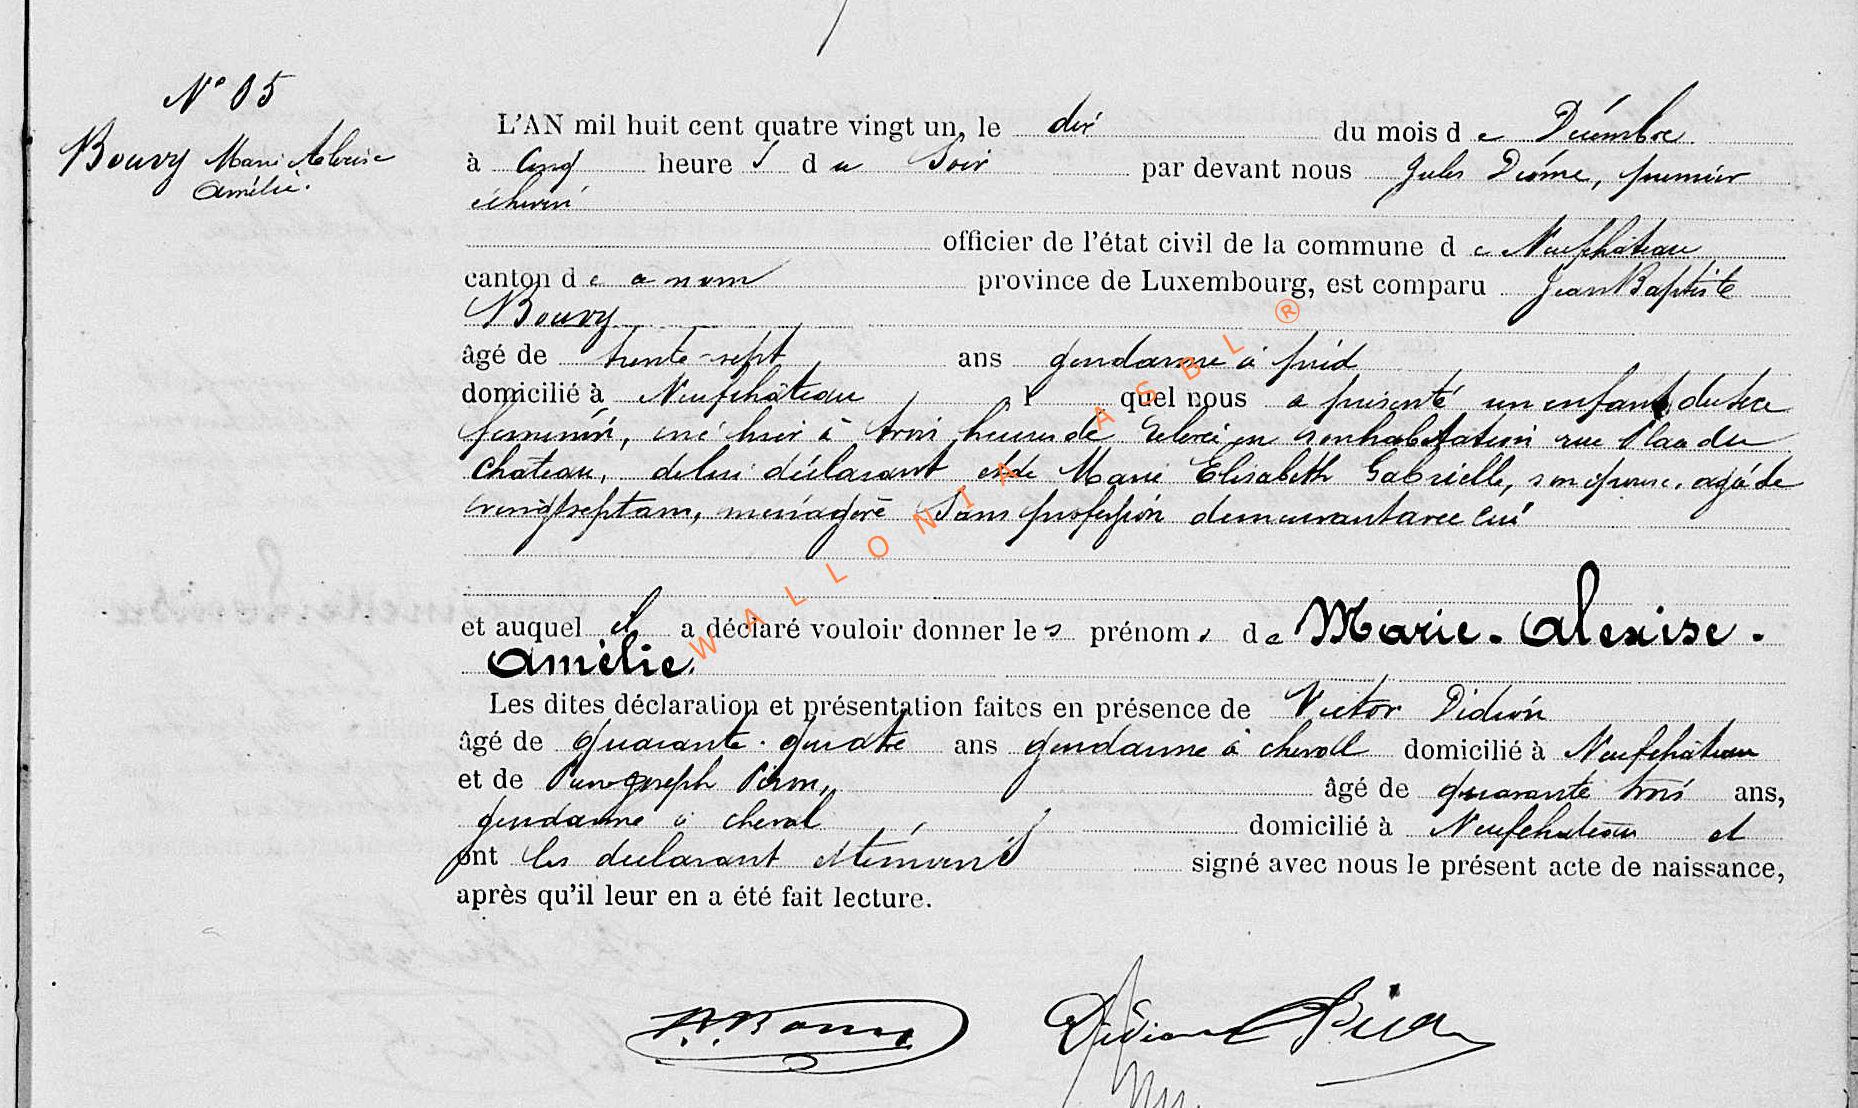 N° 85
Bouvy Marie Alexise
Amélie.
L'AN mil huit cent quatre vingt un, le dix du mois de Décembre
à cinq heures du soir par devant nous Jules Diôme, premier
échevin
officier de l'état civil de la commune de Neufchâteau
canton de ce nom province de Luxembourg, est comparu Jean Baptiste
Bouvy
âgé de trente-sept ans gendarme à pied
domicilié à Neufchâteau lequel nous a présenté un enfant du sexe
féminin, né hier à trois heures de en son habitation rue Place du
château, de lui déclarant et de Marie Elisabeth Gabrielle, son épouse, agée de
vingt sept ans, ménagère sans profession demeurant avec lui
et auquel il a déclaré vouloir donner les prénoms de Marie-Alexise-
Amélie.
Les dites déclaration et présentation faites en présence de Victor Didion
âgé de quarante-quatre ans gendarme à cheval domicilié à Neufchâteau
et de Joseph Piron, âgé de quarante trois ans,
gendarme à cheval domicilié à Neufchateau et
ont les déclarant et témoins signé avec nous le présent acte de naissance,
après qu'il leur en a été fait lecture.
Bouvy Didion
WALLONIA ASBL ®